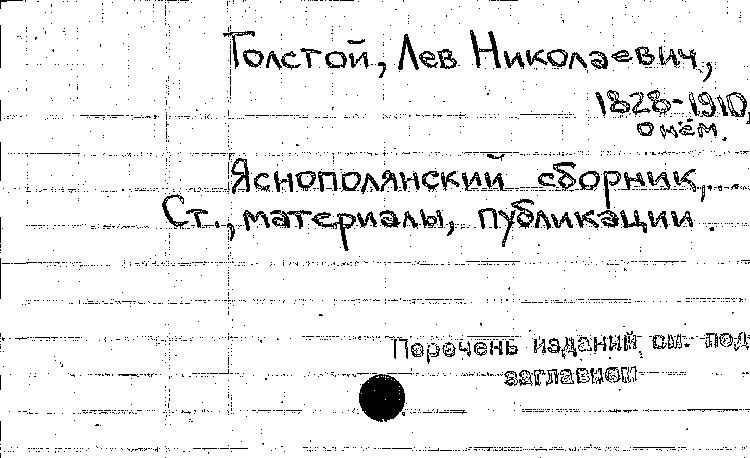 Толстой, Лев Николаевич,
1828-1910,
о нём.
Яснополянский сборник,...
Ст., материалы, публикации.
Перечень изданий см. под
заглавием